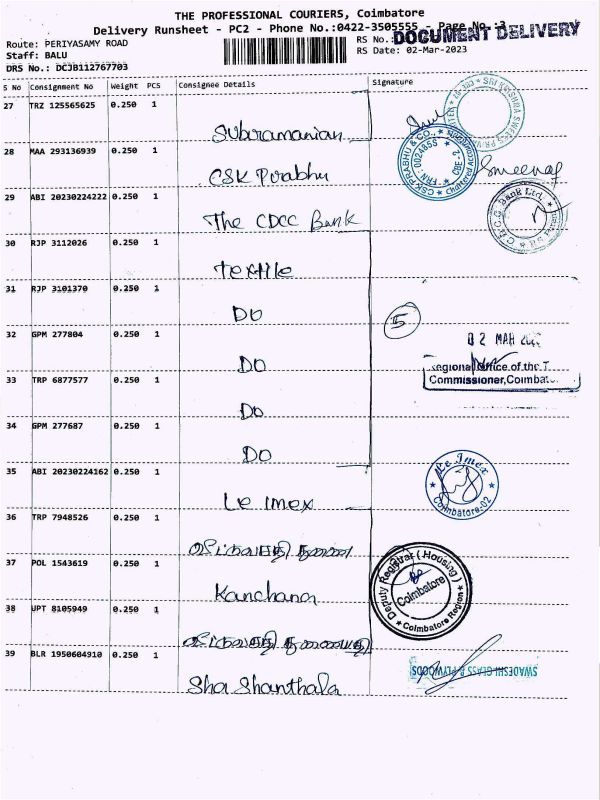 THE PROFESSIONAL COURIERS, Coimbatore
Delivery Runsheet - PC2 - Phone No.:0422-3505555 - Page No.:3
Route: PERIYASAMY ROAD
Staff: BALU
DRS No.: DCJB112767703
RS No.:
DOCUMENT DELIVERY
RS Date: 02-Mar-2023
S No Consignment No Weight PCS Consignee Details Signature
27 TRZ 125565625 0.250 1
Subramanian
28 MAA 293136939 0.250 1
CSK Prabhu
29 ABI 20230224222 0.250 1
The CDCC Bank
30 RJP 3112026 0.250 1
Textile
31 RJP 3101370 0.250 1
Do
32 GPM 277804 0.250 1
Do
33 TRP 6877577 0.250 1
Do
34 GPM 277687 0.250 1
Do
35 ABI 20230224162 0.250 1
Le Imex
36 TRP 7948526 0.250 1
37 POL 1543619 0.250 1
Kanchana
38 UPT 8105949 0.250 1
39 BLR 1950604910 0.250 1
Sha Shanthala
CSK PRABHU & CO.,
FRN: 002485S
5
02 MAR
Regional Office of the T
Commissioner, Coimbat
Le Imex
Coimbatore-02
Deputy Registrar (Housing)
Coimbatore
Coimbatore Region
SWADESHI GLASS & PLYWOODS